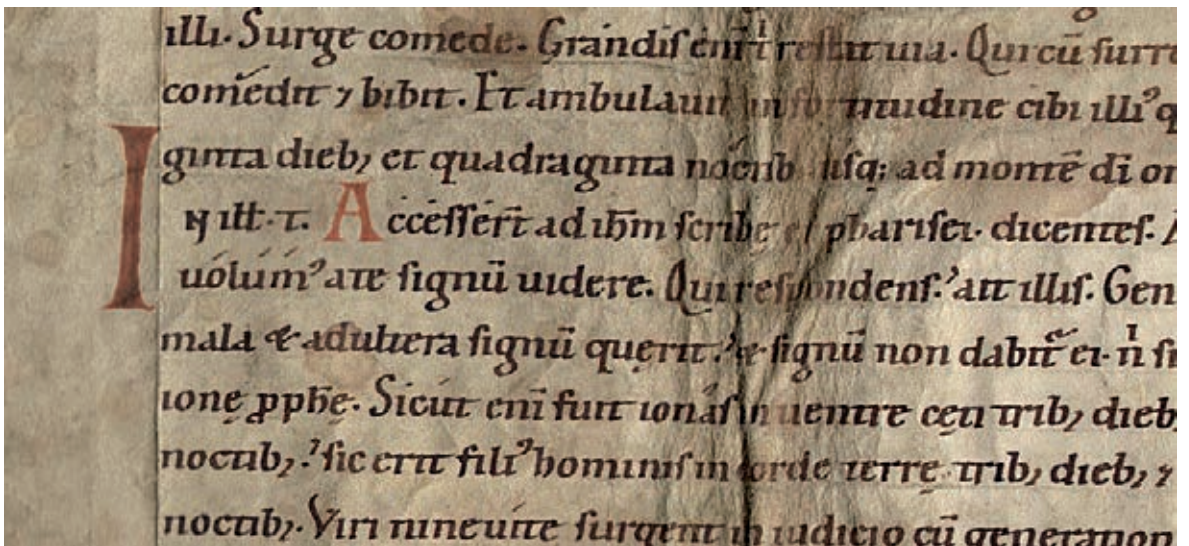 illi. Surge comede. Grandis eni t̄ restat uia. Qui cū surre
comedit ⁊ bibit. Et ambulauit in fortitudine cibi illiꝰ q
ginta dieb; et quadraginta noctib usq; ad montē dī or
IN illt̄. t. Accesserт̄ ad ihm scribe et pharisei. dicentes.
uolumꝰ a te signū uidere. Qui respondens. ait illis. Gen
mala & adultera signū querit. & signū non dabit̄ ei. n̄ si
ione ꝓph̄ę. Sicut enī fuit ionas in uentre cęti trib; dieb;
noctib;. sic erit filiꝰ hominis in corde terrę trib; dieb; ⁊
noctib;. Viri nineuite surgent in iudicio cū generation